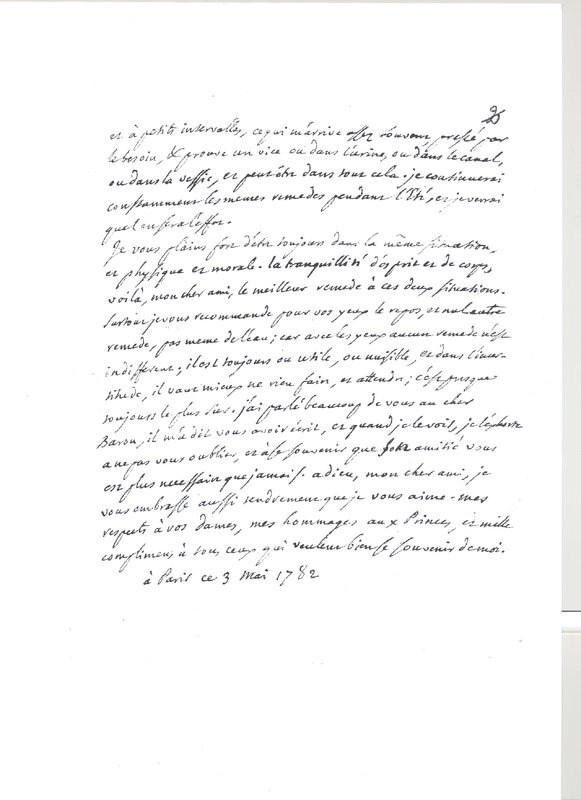 26
et à petits intervalles, ce qui m'arrive assez souvent, pressé par
le besoin, & prouve un vice ou dans l'urine, ou dans le canal,
ou dans la vessie, et peut être dans tout cela. je continuerai
constamment les memes remedes pendant l'Eté, et je verrai
quel en sera l'effet.
Je vous plains fort d'etre toujours dans la même situation,
et physique et morale. la tranquillité d'esprit et de corps,
voilà, mon cher ami, le meilleur remede à ces deux situations.
surtout je vous recommande pour vos yeux le repos, et nul autre
remede, pas meme de l'eau; car avec les yeux aucun remede n'est
indifferent; il est toujours ou utile, ou nuisible, et dans l'incer-
titude, il vaut mieux ne rien faire, et attendre; c'est presque
toujours le plus sur. j'ai parlé beaucoup de vous au cher
Baron; il m'a dit vous avoir écrit, et quand je le vois, je l'exhorte
a ne pas vous oublier, et à se souvenir que son amitié vous
est plus necessaire que jamais. adieu, mon cher ami, je
vous embrasse aussi tendrement que je vous aime. mes
respects à vos dames, mes hommages aux Princes, et mille
complimens à tous ceux qui veulent bien se souvenir de moi.
à Paris ce 3 mai 1782